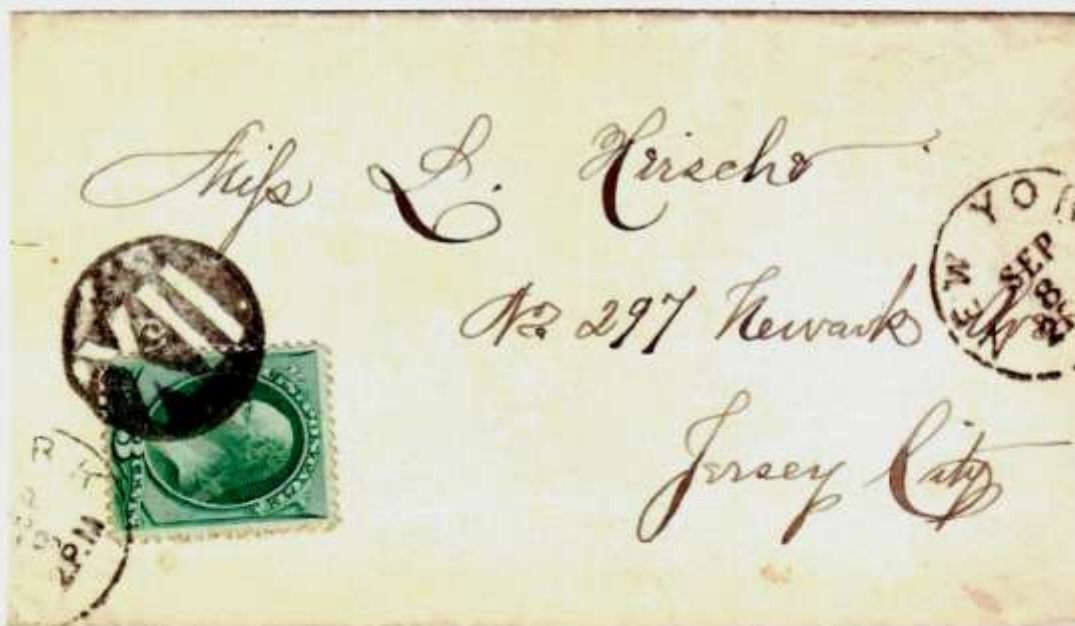 Miss L. Hirsch
No 297 Newark Ave
Jersey City
NEW YORK
SEP
8
2 P.M
3